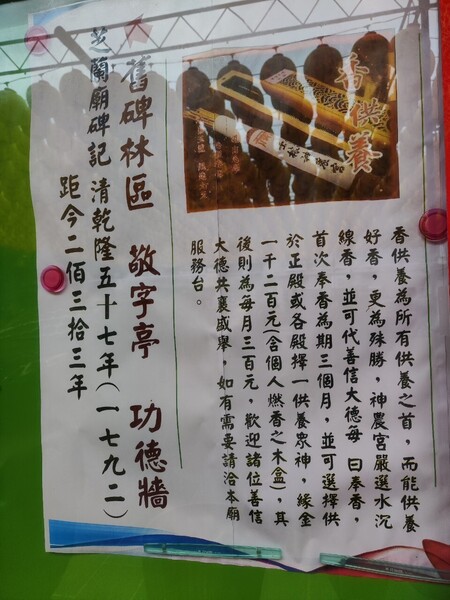 香供養
香供養為所有供養之首，而能供養
好香，更為殊勝，神農宮嚴選水沉
線香，並可代善信大德每 日奉香，
首次奉香為期三個月，並可選擇供
於正殿或各殿擇一供養眾神，緣金
一千二百元(含個人燃香之木盒)，其
後則為每月三百元，歡迎諸位善信
大德共襄盛舉，如有需要請洽本廟
服務台。
舊碑林區 敬字亭 功德牆
芝蘭廟碑記 清乾隆五十七年(一七九二)
距今二佰三拾三年